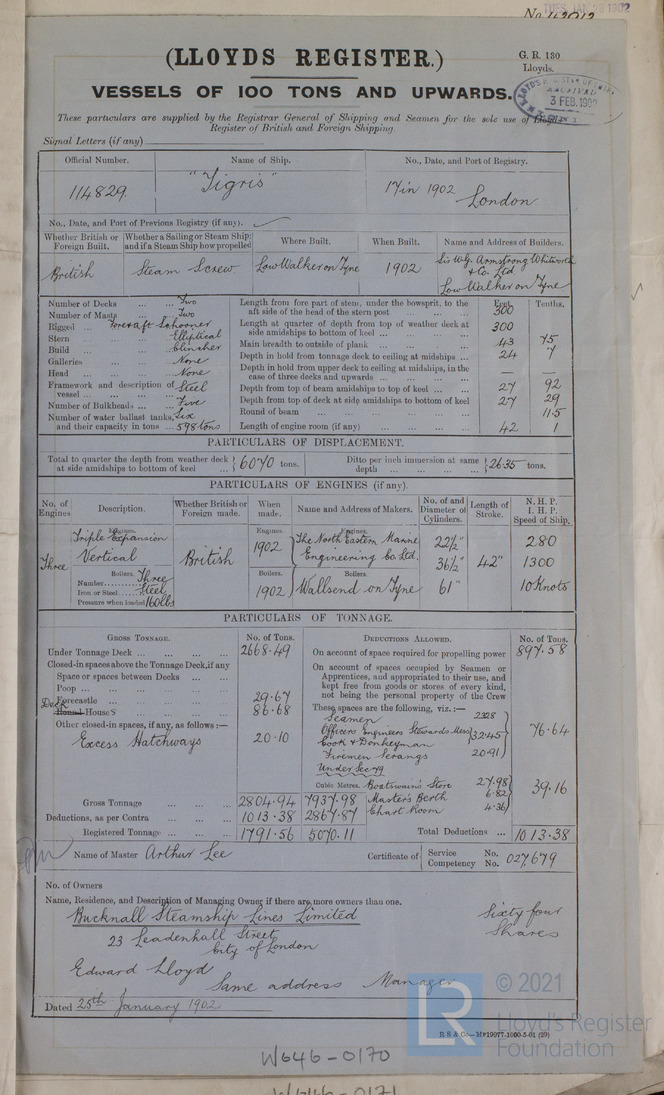 TUES. JAN 28 1902
No. 42012
(LLOYDS REGISTER.)
G. R. 130
Lloyds.
VESSELS OF 100 TONS AND UPWARDS.
3 FEB. 1902
These particulars are supplied by the Registrar General of Shipping and Seamen for the sole use of Lloyd's
Register of British and Foreign Shipping.
Signal Letters (if any)
Official Number. Name of Ship. No., Date, and Port of Registry.
114829. "Tigris" 17 in 1902 London
No., Date, and Port of Previous Registry (if any).
Whether British or Foreign Built. Whether a Sailing or Steam Ship; and if a Steam Ship how propelled Where Built. When Built. Name and Address of Builders.
British Steam Screw Low Walker on Tyne 1902 Sir W.G. Armstrong Whitworth & Co. Ltd Low Walker on Tyne
Number of Decks ... ... Two
Number of Masts ... Two
Rigged ... Fore & aft Schooner
Stern ... Elliptical
Build ... Clincher
Galleries ... ... None
Head ... ... None
Framework and description of vessel ... Steel
Number of Bulkheads ... ... Five
Number of water ballast tanks, Six
and their capacity in tons ... 598 tons
Feet. Tenths.
Length from fore part of stem, under the bowsprit, to the aft side of the head of the stern post ... 300
Length at quarter of depth from top of weather deck at side amidships to bottom of keel ... 300
Main breadth to outside of plank ... 43 75
Depth in hold from tonnage deck to ceiling at midships ... 24 7
Depth in hold from upper deck to ceiling at midships, in the case of three decks and upwards ... — —
Depth from top of beam amidships to top of keel ... 27 92
Depth from top of deck at side amidships to bottom of keel 27 29
Round of beam ... 11.5
Length of engine room (if any) ... 42 1
PARTICULARS OF DISPLACEMENT.
Total to quarter the depth from weather deck at side amidships to bottom of keel ... 6070 tons. Ditto per inch immersion at same depth ... 26.35 tons.
PARTICULARS OF ENGINES (if any).
No. of Engines Description. Whether British or Foreign made. When made. Name and Address of Makers. No. of and Diameter of Cylinders. Length of Stroke. N. H. P. I. H. P. Speed of Ship.
Engines. Engines. Engines.
Three Triple Expansion Vertical British 1902 The North Eastern Marine Engineering Co Ltd. 22½" 36½" 61" 42" 280 1300 10 Knots
Boilers. Boilers. Boilers.
Number Three
Iron or Steel Steel
Pressure when loaded 160 lbs
1902 Wallsend on Tyne
PARTICULARS OF TONNAGE.
GROSS TONNAGE. No. of Tons. DEDUCTIONS ALLOWED. No. of Tons.
Under Tonnage Deck ... 2668.49
Closed-in spaces above the Tonnage Deck, if any
Space or spaces between Decks ...
Poop ...
Forecastle ... 29.67
Deck Round Houses ... 86.68
Other closed-in spaces, if any, as follows:—
Excess Hatchways 20.10
Gross Tonnage ... 2804.94 7937.98
Deductions, as per Contra ... 1013.38 2867.87
Registered Tonnage ... 1791.56 5070.11
On account of space required for propelling power 897.58
On account of spaces occupied by Seamen or Apprentices, and appropriated to their use, and kept free from goods or stores of every kind, not being the personal property of the Crew
These spaces are the following, viz.:—
Seamen 23.28
Officers Engineers Stewards Mess 32.45
Cook & Donkeyman
Firemen Serangs 20.91
76.64
Under Sec 79
Cubic Metres. Boatswain's Store 27.98
Master's Berth 6.82
Chart Room 4.36
39.16
Total Deductions ... 1013.38
Name of Master Arthur Lee Certificate of Service No. Competency No. 027679
No. of Owners
Name, Residence, and Description of Managing Owner if there are more owners than one.
Bucknall Steamship Lines Limited Sixty four
23 Leadenhall Street Shares
City of London
Edward Lloyd
Same address Manager
Dated 25th January 1902
© 2021
LR
Lloyd's Register
Foundation
R S & Co.—M*19977-1000-5-01 (29)
W646-0170
W646-0171